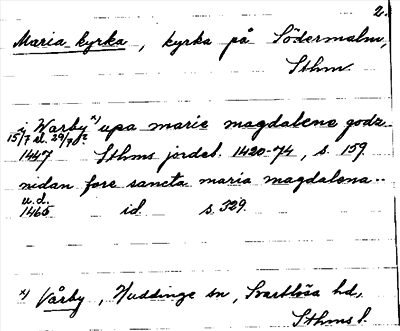 2.
Maria kyrka, kyrka på Södermalm,
Sthm.
j Warby x) upa marie magdalene godz
15/7 el. 29/70?
1447 Sthms jordeb. 1420-74, s. 159.
nedan fore sancta maria magdalena..
u.d.
1465 id. s. 329.
x) Vårby, Huddinge sn, Svartlösa hd,
Sthms l.